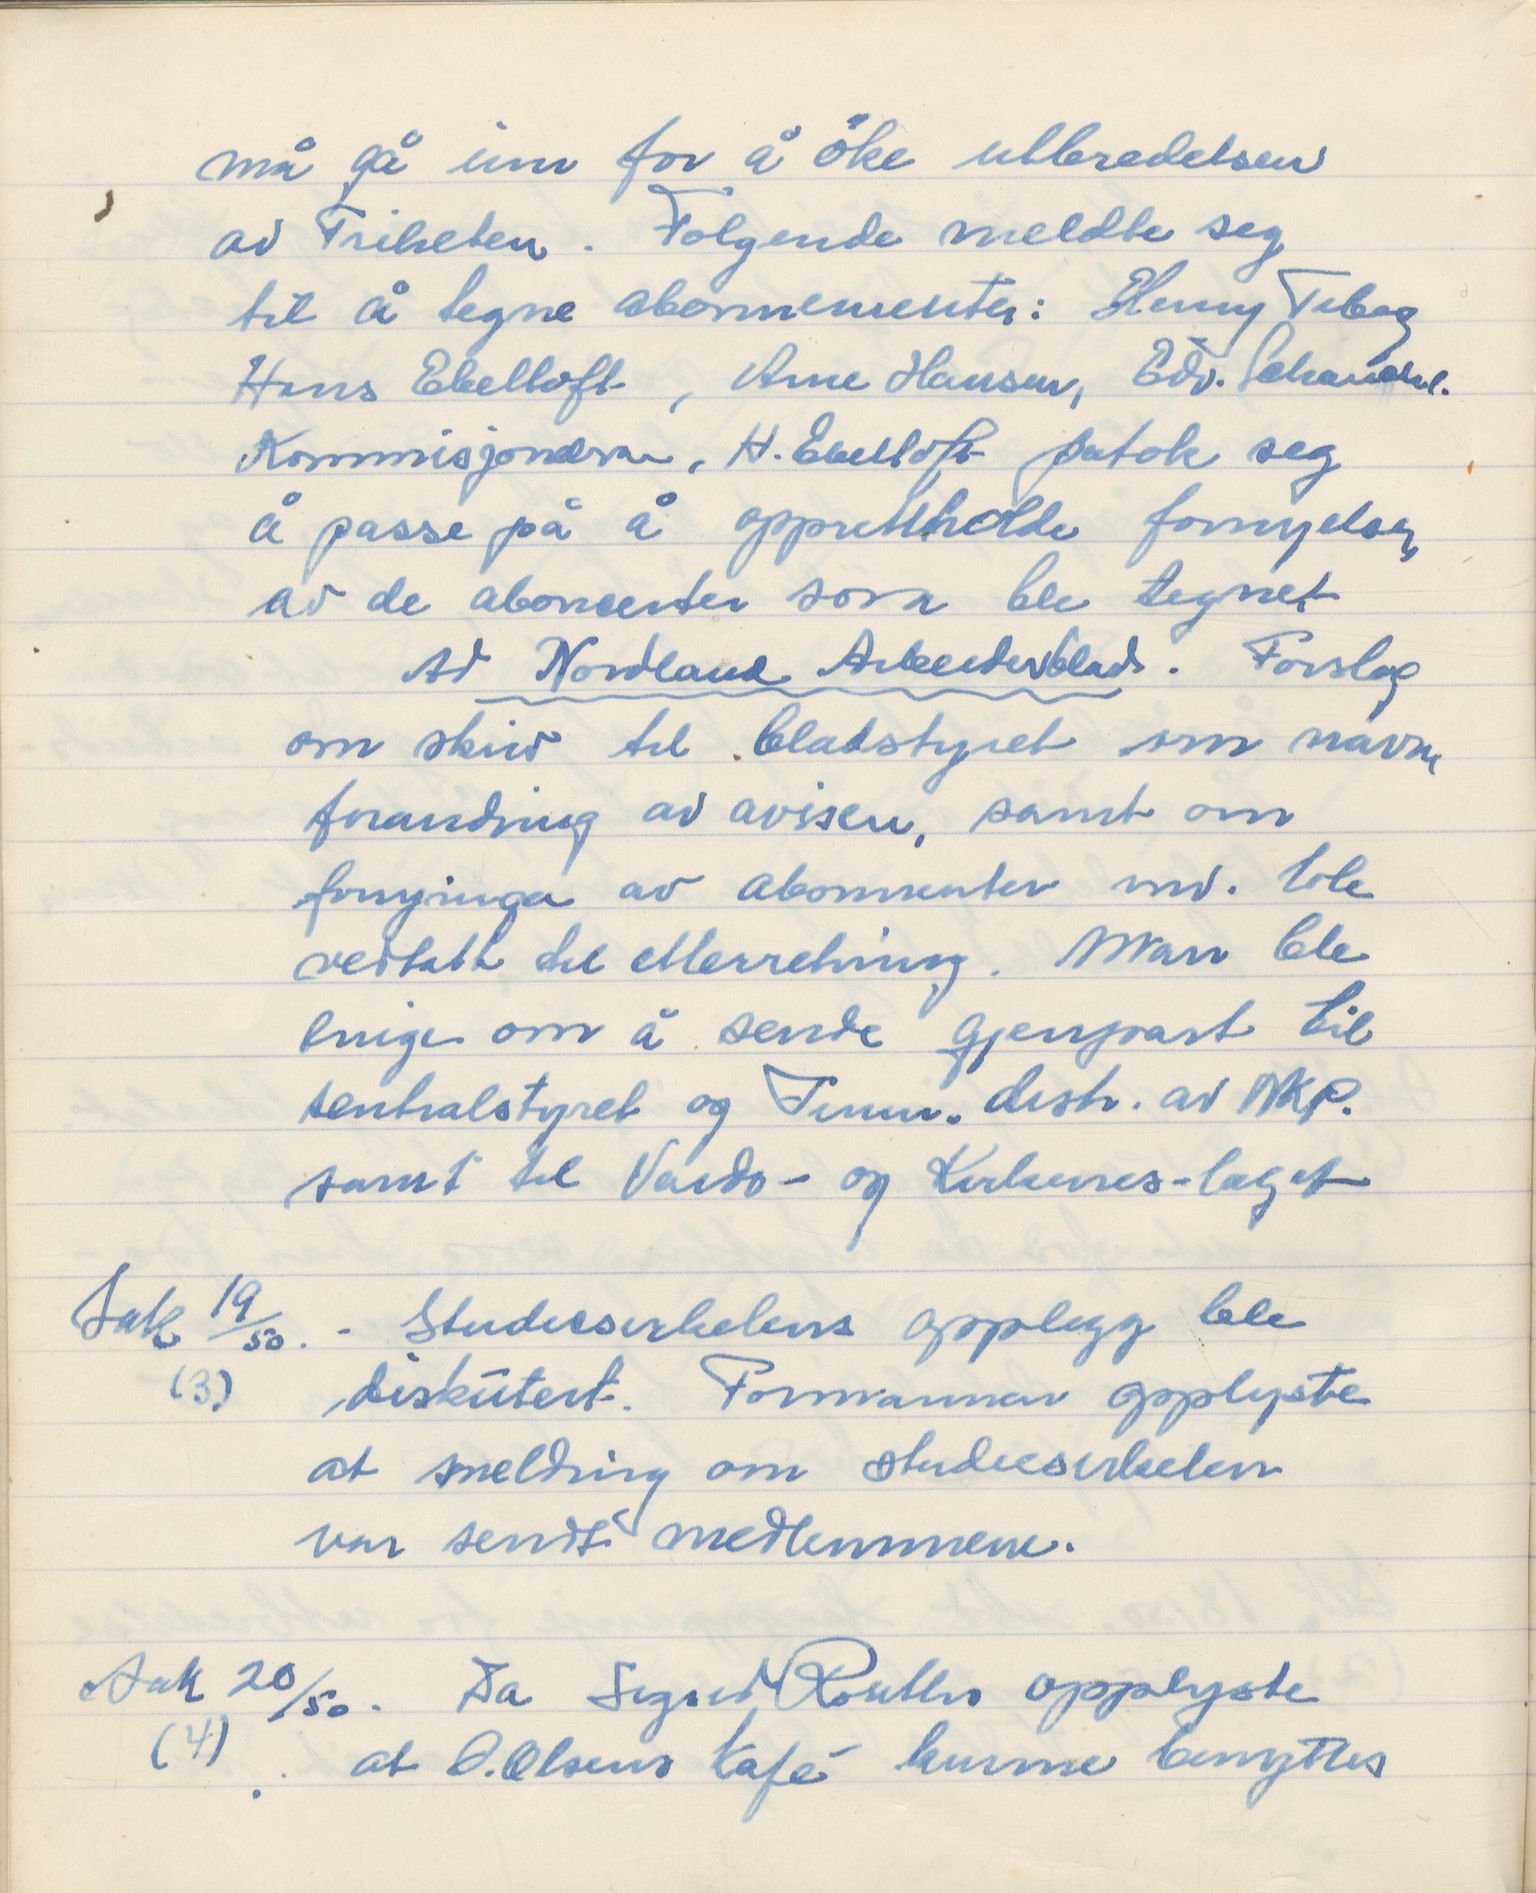 må gå inn for å öke utbredelsen
av Friheten. Følgende meldte seg
til å tegne abonnementer: Henny
Hans Ebeltoft, Arne Hansen, Edv.
Kommisjonæren, H. Ebeltoft påtok seg
å passe på å opprettholde fornyelser
av de abonenter som ble tegnet
Ad Nordland Arbeiderblad. Forslag
om skriv til bladstyret om navne
forandring av avisen, samt om
fornyinga av abonnenter mv. ble
vedtatt til etterretning. Man ble
enige om å sende gjenpart til
sentralstyret og Finnm. distr. av NKP.
samt til Vardø- og Kirkenes-laget
Sak 19/50. - Studiesirkelens opplegg ble
(3) diskutert. Formannen opplyste
at melding om studiesirkelen
var sendt medlemmene.
Sak 20/50. Da Sigurd opplyste
(4) at O. Olsens Kafé kunne benyttes